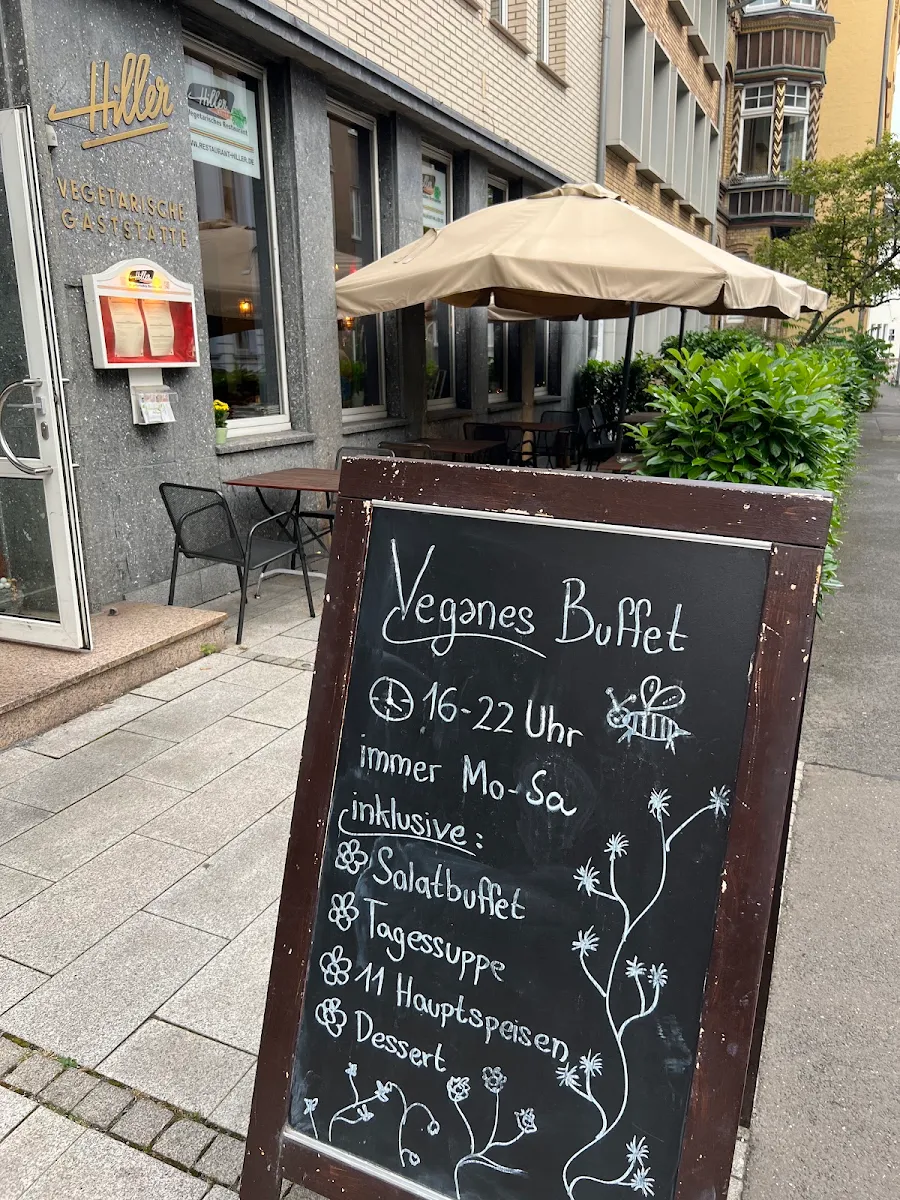 Hiller
VEGETARISCHE
GASTSTÄTTE
Hiller
Vegetarisches Restaurant
WWW.RESTAURANT-HILLER.DE
Hiller
Veganes Buffet
16-22 Uhr
immer Mo-Sa
inklusive:
Salatbuffet
Tagessuppe
11 Hauptspeisen
Dessert